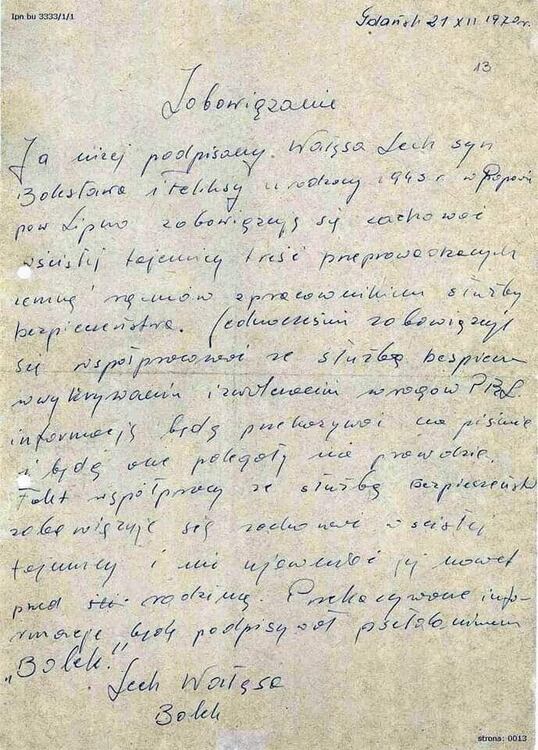 Ipn bu 3333/1/1
Gdańsk 21 XII 1970r.
13
Zobowiązanie
Ja niżej podpisany. Wałęsa Lech syn
Bolesława i Feliksy urodzony 1943 r. w Popowie
pow Lipno zobowiązują się zachować
wścisłej tajemnicy treść przeprowadzanych
zemną rozmów z pracownikim służby
bezpieczeństwa. Jednocześni zobowiązyję
się współpracować ze służbą bezpiecz
wwykrywaniu i zwalczaniu wrogów PRL.
informację będą przekazywać na piśmie
i będą one polegały na prawdzie.
Fakt współpracy ze służbą bezpieczeńst
zobowiązuję się zachować w ścisłej
tajemnicy i nie ujawniać jej nawet
przed rodziną. Przekazywane info-
rmacje będę podpisywał psełdonimem
„Bolek".
Lech Wałęsa
Bolek
strona: 0013